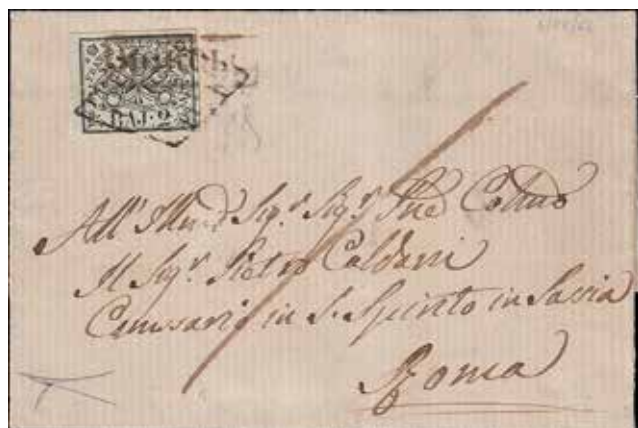 BAJ. 2
All' Illmo Sigr. Sigr.
Il Sigr. Pietro Caldani
Comissario in S. Spirito in Sassia
Roma